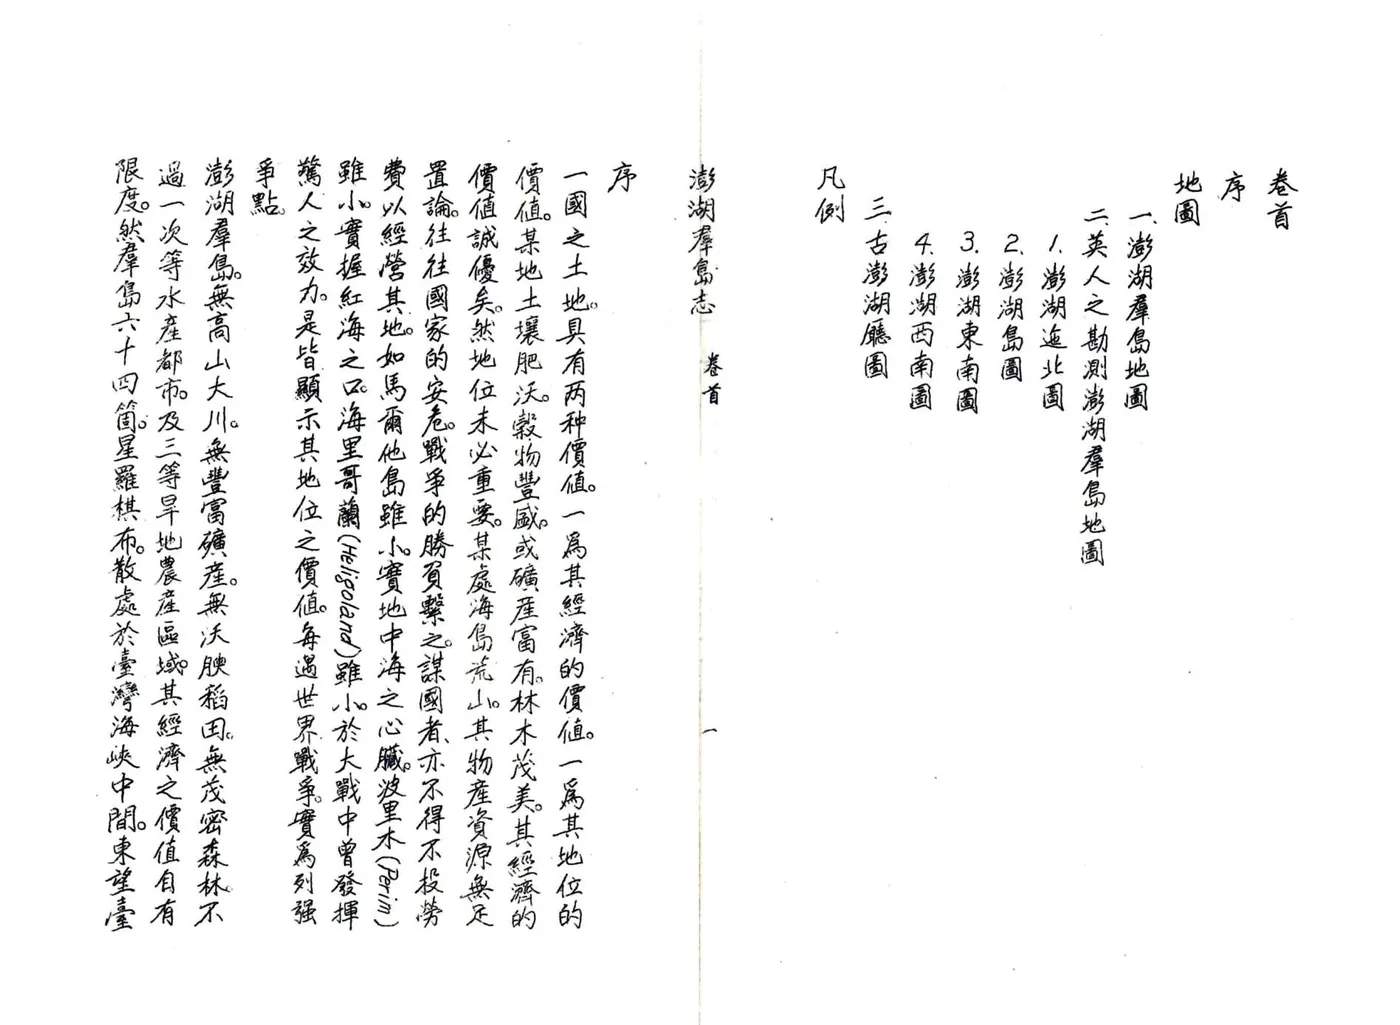 卷首
序
地圖
一、澎湖羣島地圖
二、英人之勘測澎湖羣島地圖
1.澎湖迤北圖
2.澎湖島圖
3.澎湖東南圖
4.澎湖西南圖
三、古澎湖廳圖
凡例
澎湖羣島志 卷首 一
序
一國之土地。具有两种價值。一爲其經濟的價值。一爲其地位的
價值。某地土壤肥沃。穀物豐盛。或礦産富有。林木茂美。其經濟的
價值誠優矣。然地位未必重要。某處海島荒山。其物産資源無足
置論。往往國家的安危。戰爭的勝負繫之。謀國者、亦不得不投勞
費以經營其地。如馬爾他島雖小。實地中海之心臟。波里木(Perim)
雖小。實握紅海之口。海里哥蘭(Heligoland)雖小。於大戰中曾發揮
驚人之效力。是皆顯示其地位之價值。每遇世界戰爭。實爲列强
爭點。
澎湖羣島。無高山大川。無豐富礦産。無沃腴稻田。無茂密森林。不
過一次等水産都市。及三等旱地農産區域。其經濟之價值自有
限度。然羣島六十四箇。星羅棋布。散處於臺灣海峽中間。東望臺